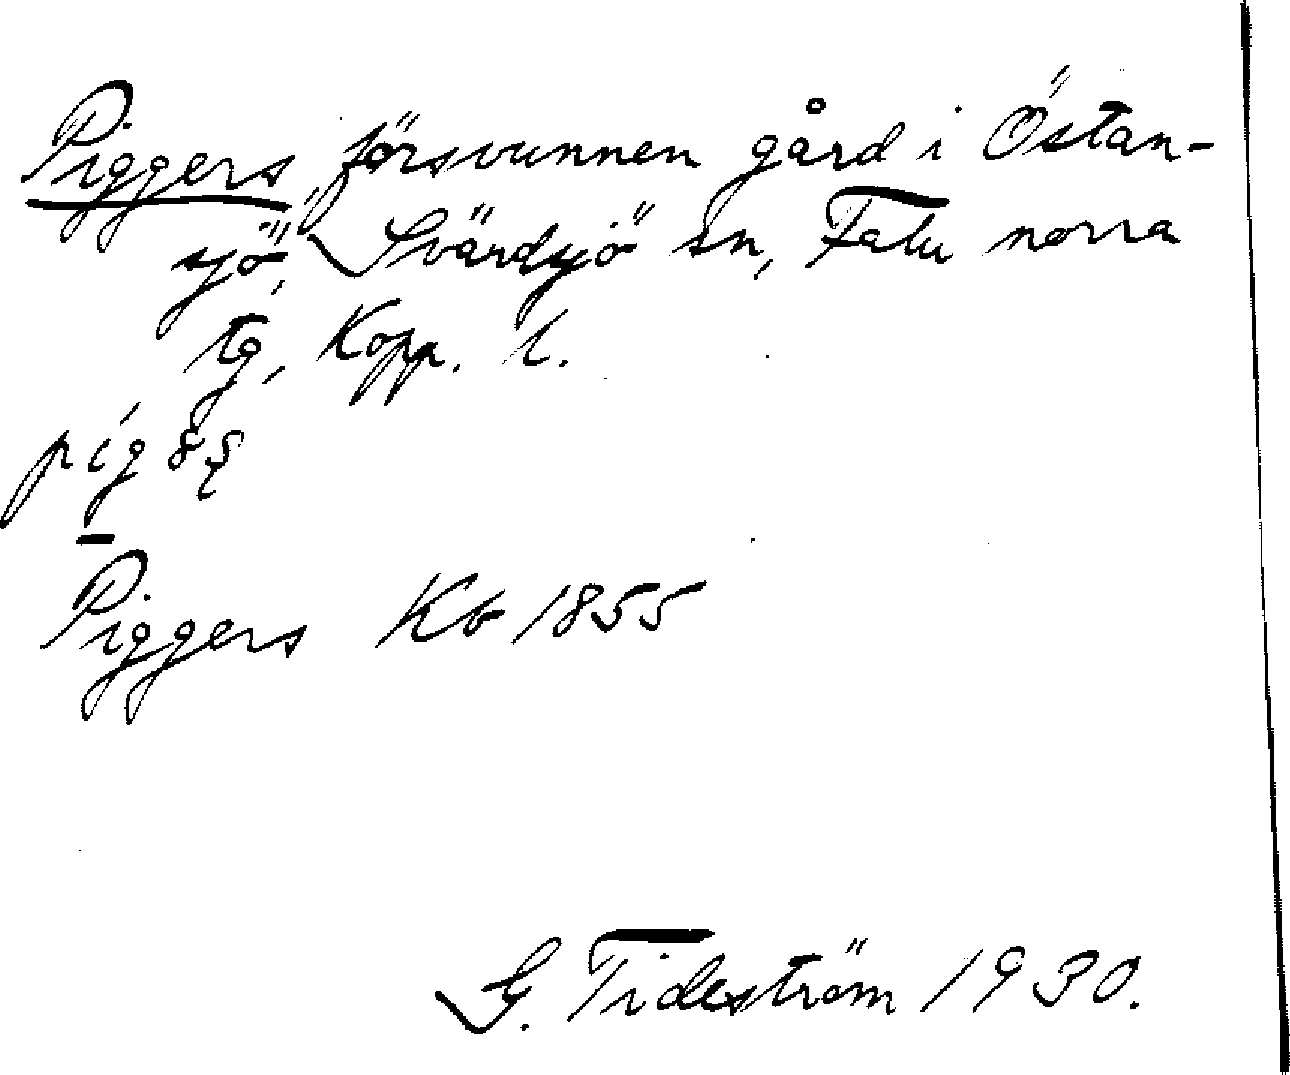 Piggers, försvunnen gård i Östan-
sjö, Svärdsjö sn, Falu norra
tg, Kopp. l.
Piggers Kb 1855
G. Tideström 1930.